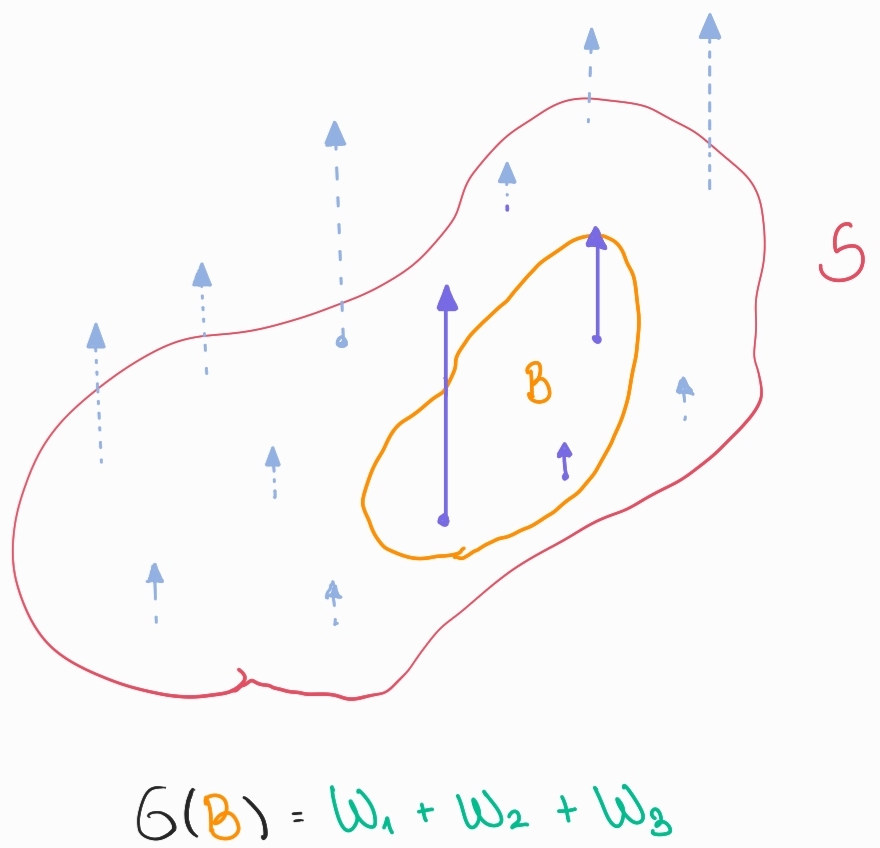 S
B
G(B) = W₁ + W₂ + W₃